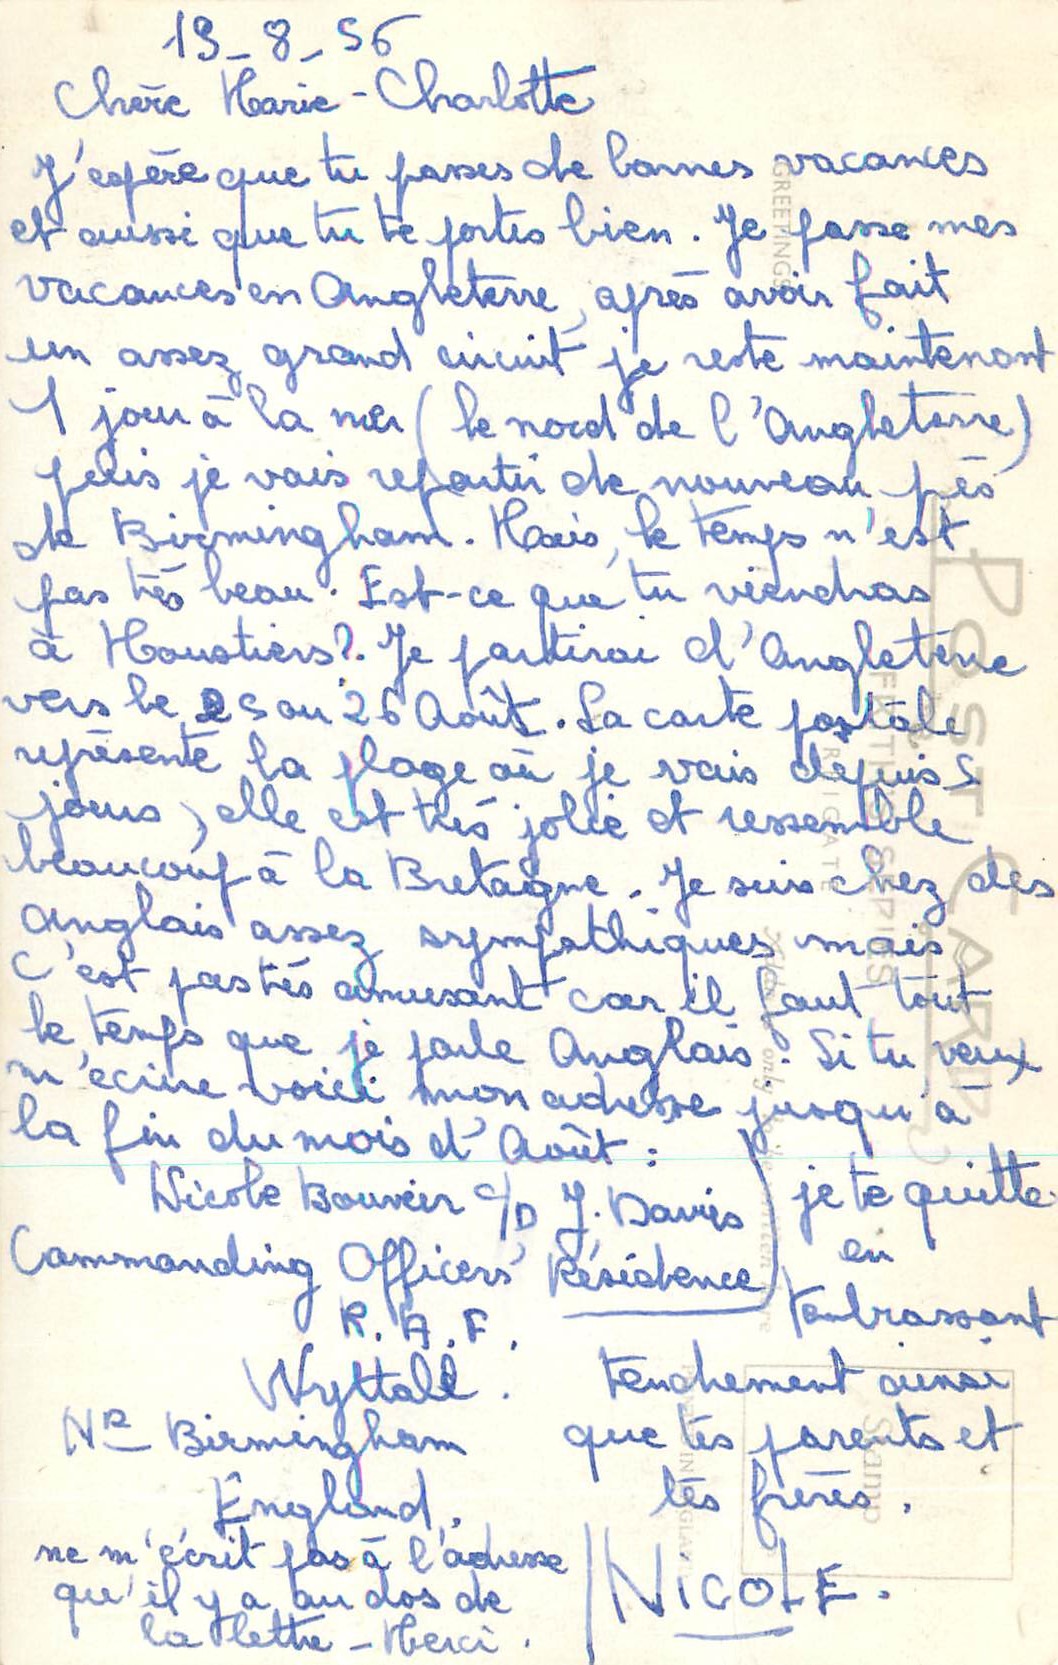 19-8-56
Chère Marie-Charlotte
J'espère que tu passes de bonnes vacances
et aussi que tu te portes bien. Je passe mes
vacances en Angleterre, après avoir fait
un assez grand circuit je reste maintenant
1 jour à la mer (le nord de l'Angleterre)
puis je vais repartir de nouveau près
de Birmingham. Mais, le temps n'est
pas très beau. Est-ce que tu viendras
à Moustiers?. Je partirai d'Angleterre
vers le 25 ou 26 Août. La carte postale
représente la plage où je vais depuis 5
jours, elle est très jolie et ressemble
beaucoup à la Bretagne. Je suis chez des
Anglais assez sympathiques mais
c'est pas très amusant car il faut tout
le temps que je parle Anglais. Si tu veux
m'écrire voici mon adresse jusqu'à
la fin du mois d'Août :
Nicole Bouvier c/o J. Davis
Commanding Officers' Résidence
R.A.F.
Wyttall.
Nr Birmingham
England.
je te quitte
en
t'embrassant
tendrement ainsi
que tes parents et
tes frères.
NICOLE.
ne m'écrit pas à l'adresse
qu'il y a au dos de
la lettre - Merci.
POST CARD
GREETINGS
SERIES
Stamp